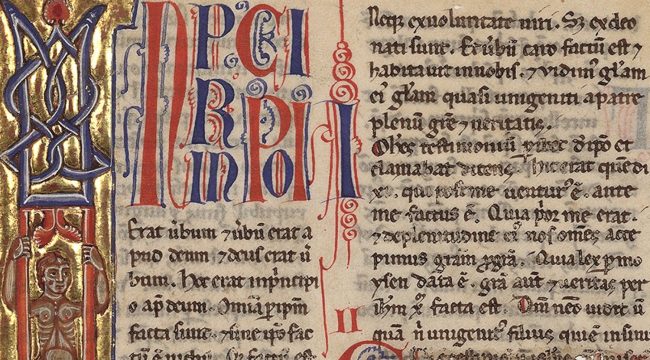 N P CI
R PI
IN O
Erat ůbum ⁊ ůbũ erat a
pud deum ⁊ deus erat ů
bum. Hoc erat inpͥncipi
o ap̃ deum. Om̃ia p ip̃m
facta sunt. ⁊ sine ip̃o fac
tũ ẽ nichil
Neq; ex uoluntate uiri. Sȝ ex deo
nati sunt. Et ůbũ caro factũ est ⁊
habitauit in nobis. ⁊ uidimꝰ gl̃am
eiꝰ gl̃am quasi unigeniti a patre
plenum gr̃e ⁊ ueritatis.
Iohes testimoniũ phibet de ip̃o et
clamabat dicens. Hic erat quẽ di
xi. qui post me uenturꝰ ẽ. ante
me factus ẽ. Quia p̃or me erat.
⁊ de plenitudine eiꝰ nos om̃es acce
pimus gr̃am p gr̃a. Quia lex p mo
ysen data ẽ. gr̃a aut̃ ⁊ ueritas per
ih̃m xp̃ facta est. Dm̃ nẽo uidit ũ
quã ñ unigenitꝰ filius qui ẽ in sinu
II